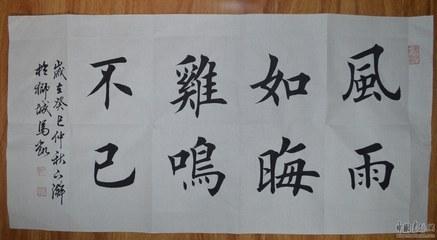 風雨
如晦
雞鳴
不已
歲在癸巳仲秋六游
於獅城馬凱